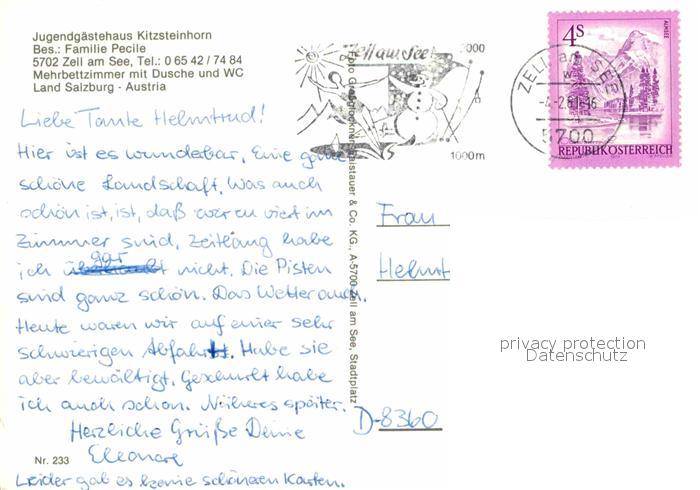 Jugendgästehaus Kitzsteinhorn
Bes.: Familie Pecile
5702 Zell am See, Tel.: 0 65 42 / 74 84
Mehrbettzimmer mit Dusche und WC
Land Salzburg - Austria
Liebe Tante Helmtrud!
Hier ist es wunderbar. Eine ganz
schöne Landschaft. Was auch
schön ist, ist, daß wir zu viert im
Zimmer sind. Zeitlang habe
ich gar nicht. Die Pisten
sind ganz schön. Das Wetter auch.
Heute waren wir auf einer sehr
schwierigen Abfahrt. Habe sie
aber bewältigt. Geschurlt habe
ich auch schon. Näheres später.
Herzliche Grüße Deine
Eleonore
Leider gab es keine schöneren Karten.
Nr. 233
& Co. KG., A-5700 Zell am See, Stadtplatz
Zell am See
2000
1000 m
ZELL AM SEE
5700
4 S
ALMSEE
REPUBLIK ÖSTERREICH
Frau
Helmt
D-8360
privacy protection
Datenschutz